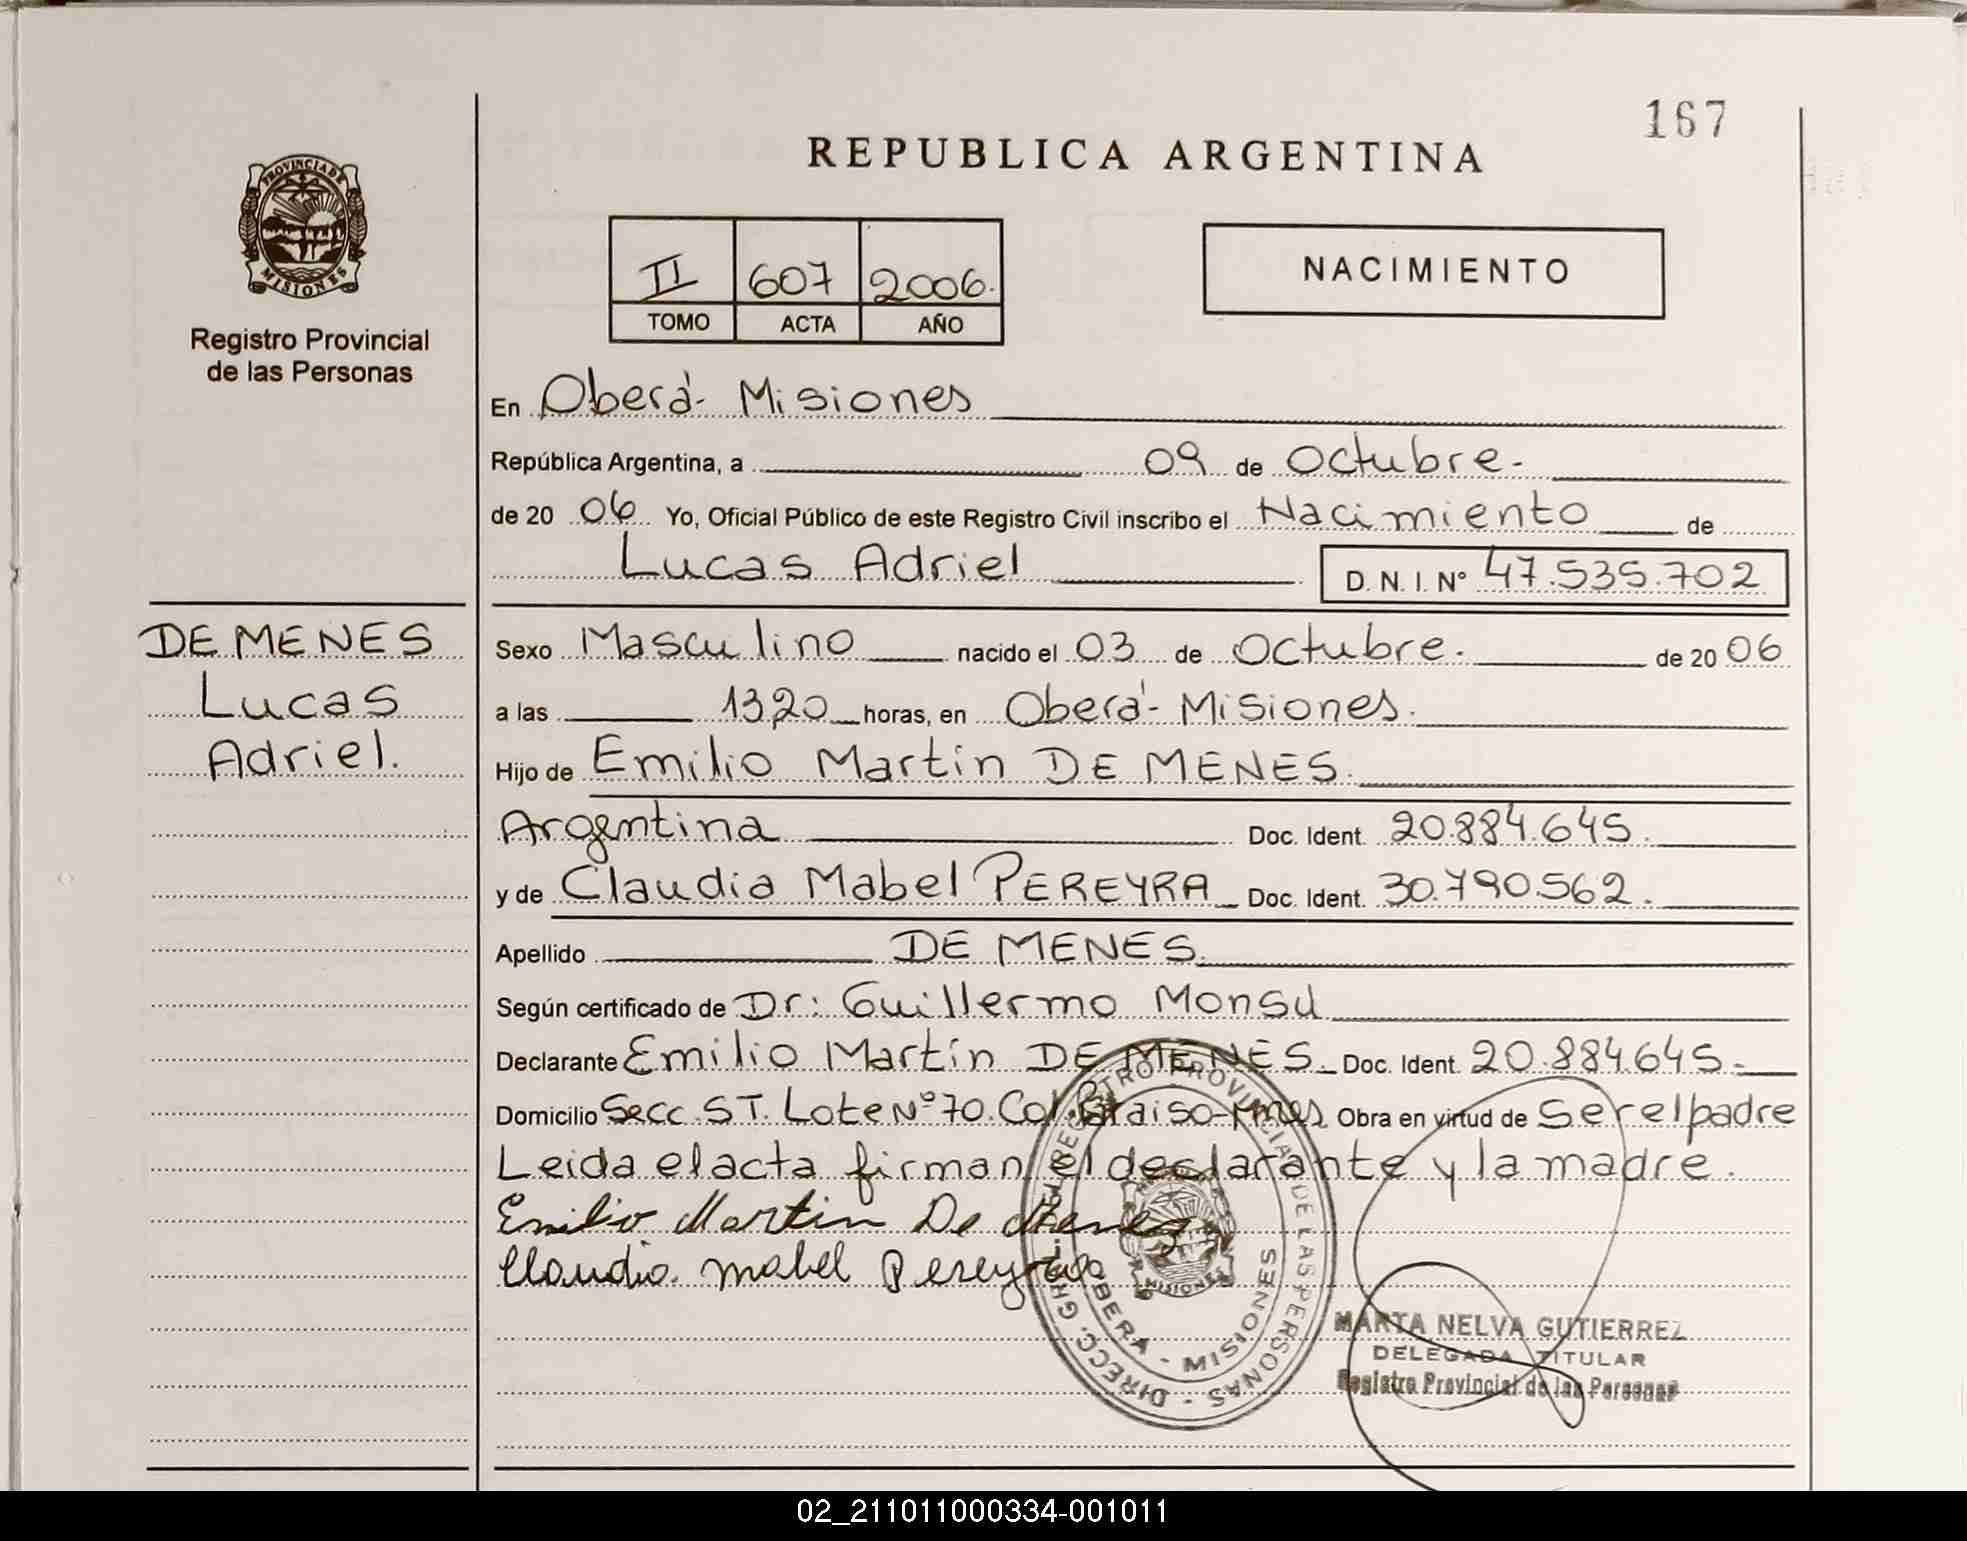 167
REPUBLICA ARGENTINA
PROVINCIA DE MISIONES
Registro Provincial
de las Personas
II 607 2006.
TOMO ACTA AÑO
NACIMIENTO
En Oberá- Misiones
República Argentina, a 09 de Octubre.
de 20 06 Yo, Oficial Público de este Registro Civil inscribo el Nacimiento de
Lucas Adriel D. N. I. N° 47.535.702
DE MENES
Lucas
Adriel.
Sexo Masculino nacido el 03 de Octubre. de 20 06
a las 1320 horas, en Oberá- Misiones.
Hijo de Emilio Martín DE MENES.
Argentina Doc. Ident. 20.884.645.
y de Claudia Mabel PEREYRA Doc. Ident. 30.790.562.
Apellido DE MENES.
Según certificado de Dr: Guillermo Monsu
Declarante Emilio Martín DE MENES. Doc. Ident. 20.884645.
Domicilio Secc. ST. Lote N° 70. Col. Paraiso-Mnes Obra en virtud de Ser el padre
Leida el acta firman el declarante y la madre.
Emilio Martin De Menes
Claudia Mabel Pereyra
DIRECC. GRAL. REGISTRO PROVINCIAL DE LAS PERSONAS
OBERA - MISIONES
MISIONES
MARTA NELVA GUTIERREZ
DELEGADA TITULAR
Registro Provincial de las Personas
02_211011000334-001011